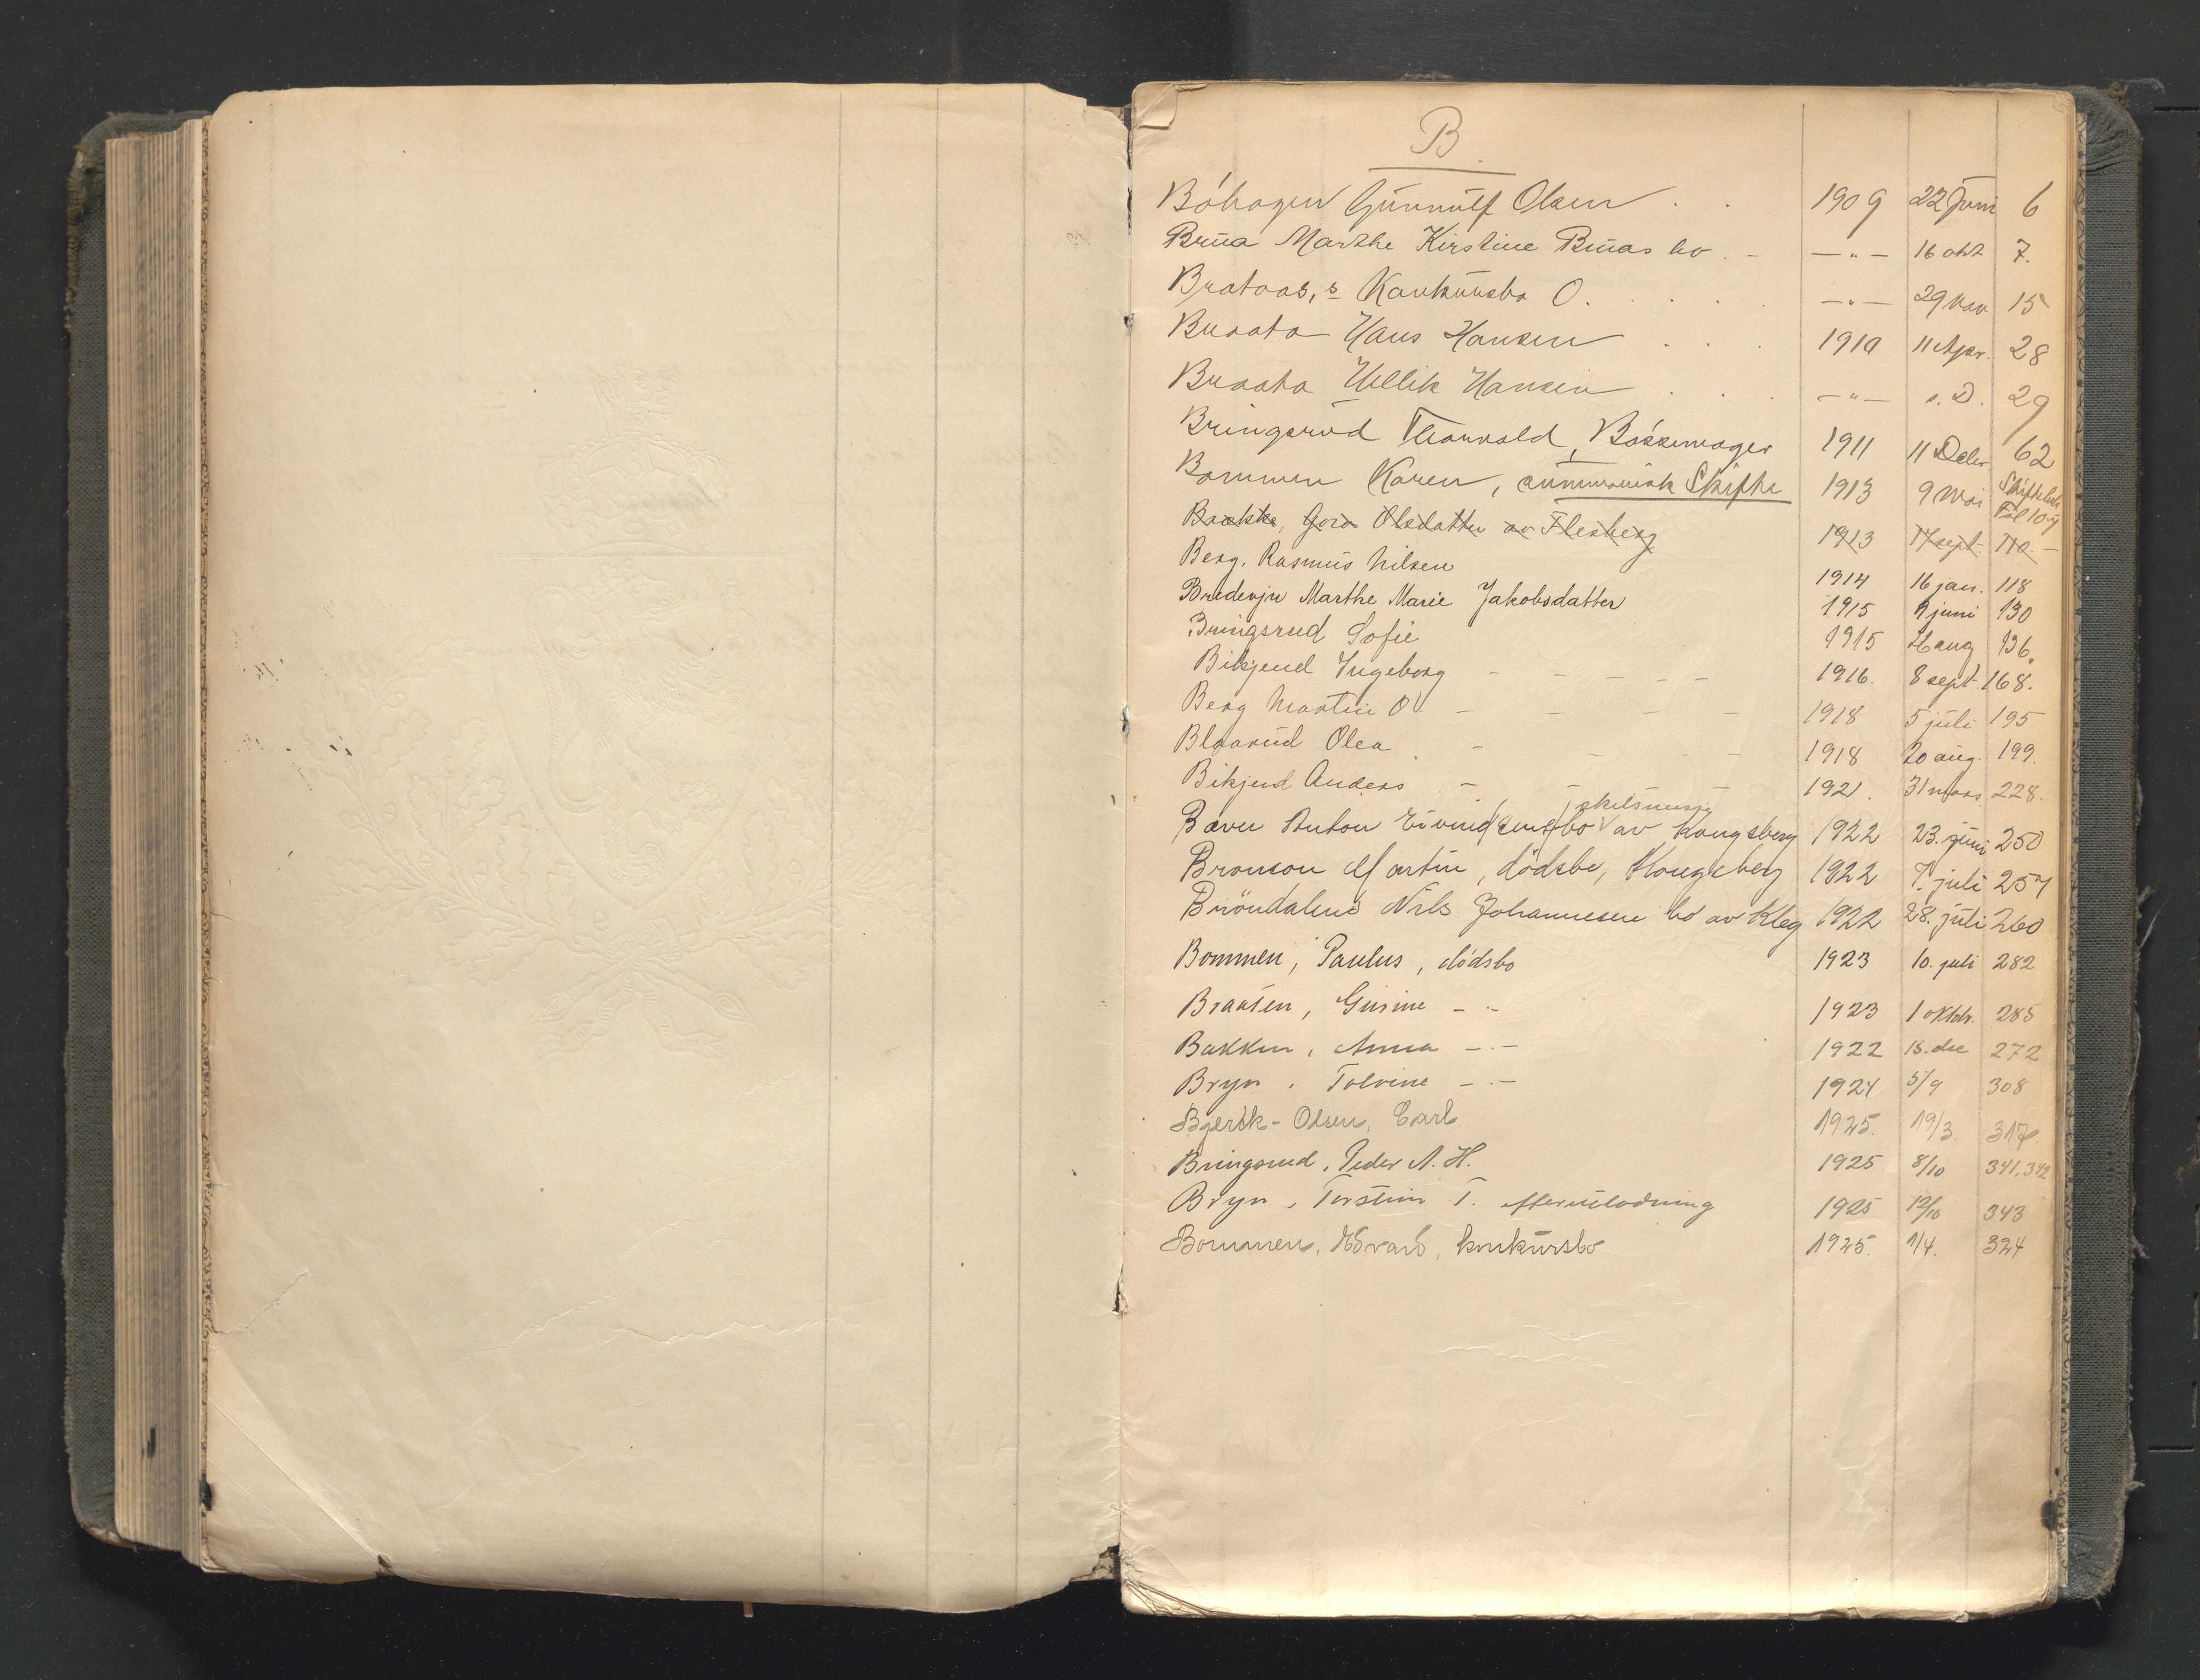 B
Böhagen Gunnulf Olsen . . 1909 22 Juni 6
Brua Marthe Kirstine Bruas bo . - —"— 16 okt 7.
Brataas, s Konkursbo O. . . . . —"— 29 Nov 15
Braata Hans Hansen . . . 1910 11 Apr. 28
Braata Hellik Hansen . . . —"— s. D. 29
Bringsrud Thorvald, Bössemager 1911 11 Debr 62
Bommen Karen, summarisk Skifte 1913 9 Mai Skiftebeh. Fol 10
Brekke, Goro Olsdatter av Flesberg 1913 17 sept 110.-
Berg. Rasmus Nilsen 1914 16 jan. 118
Bredevju Marthe Marie Jakobsdatter 1915 9 juni 130
Bringsrud Sofie 1915 aug 136.
Bikjend Ingeborg - - - - - 1916. 8 sept. 168.
Berg Martin O. - - - - 1918 5 juli 195
Blaarud Olea - - - - 1918 20 aug. 199.
Bikjend Anders - - - - 1921. 31 mars 228.
skilsmisse
Bævu Anton Eivind(sens) bo av Kongsberg 1922 23. juni 250
Bronson Martin, dödsbo, Kongsberg 1922 7. juli 257
Bröndalens Nils Johannesen bo av Kbg 1922 28. juli 260
Bommen, Paulus, dödsbo 1923 10. juli 282
Braaten, Gurine - " - 1923 1 oktbr. 285
Bakken, Anna - " - 1922 15. dec 272
Bryn, Tolvine - " - 1924 5/9 308
Bjerck-Olsen, Carl 1925. 19/3. 317
Bringsrud, Peder A. H. 1925 8/10 341, 342
Bryn, Torstein T. efterutlodning 1925 12/10 343
Bommen, Edvard, konkursbo 1925. 1/4. 324